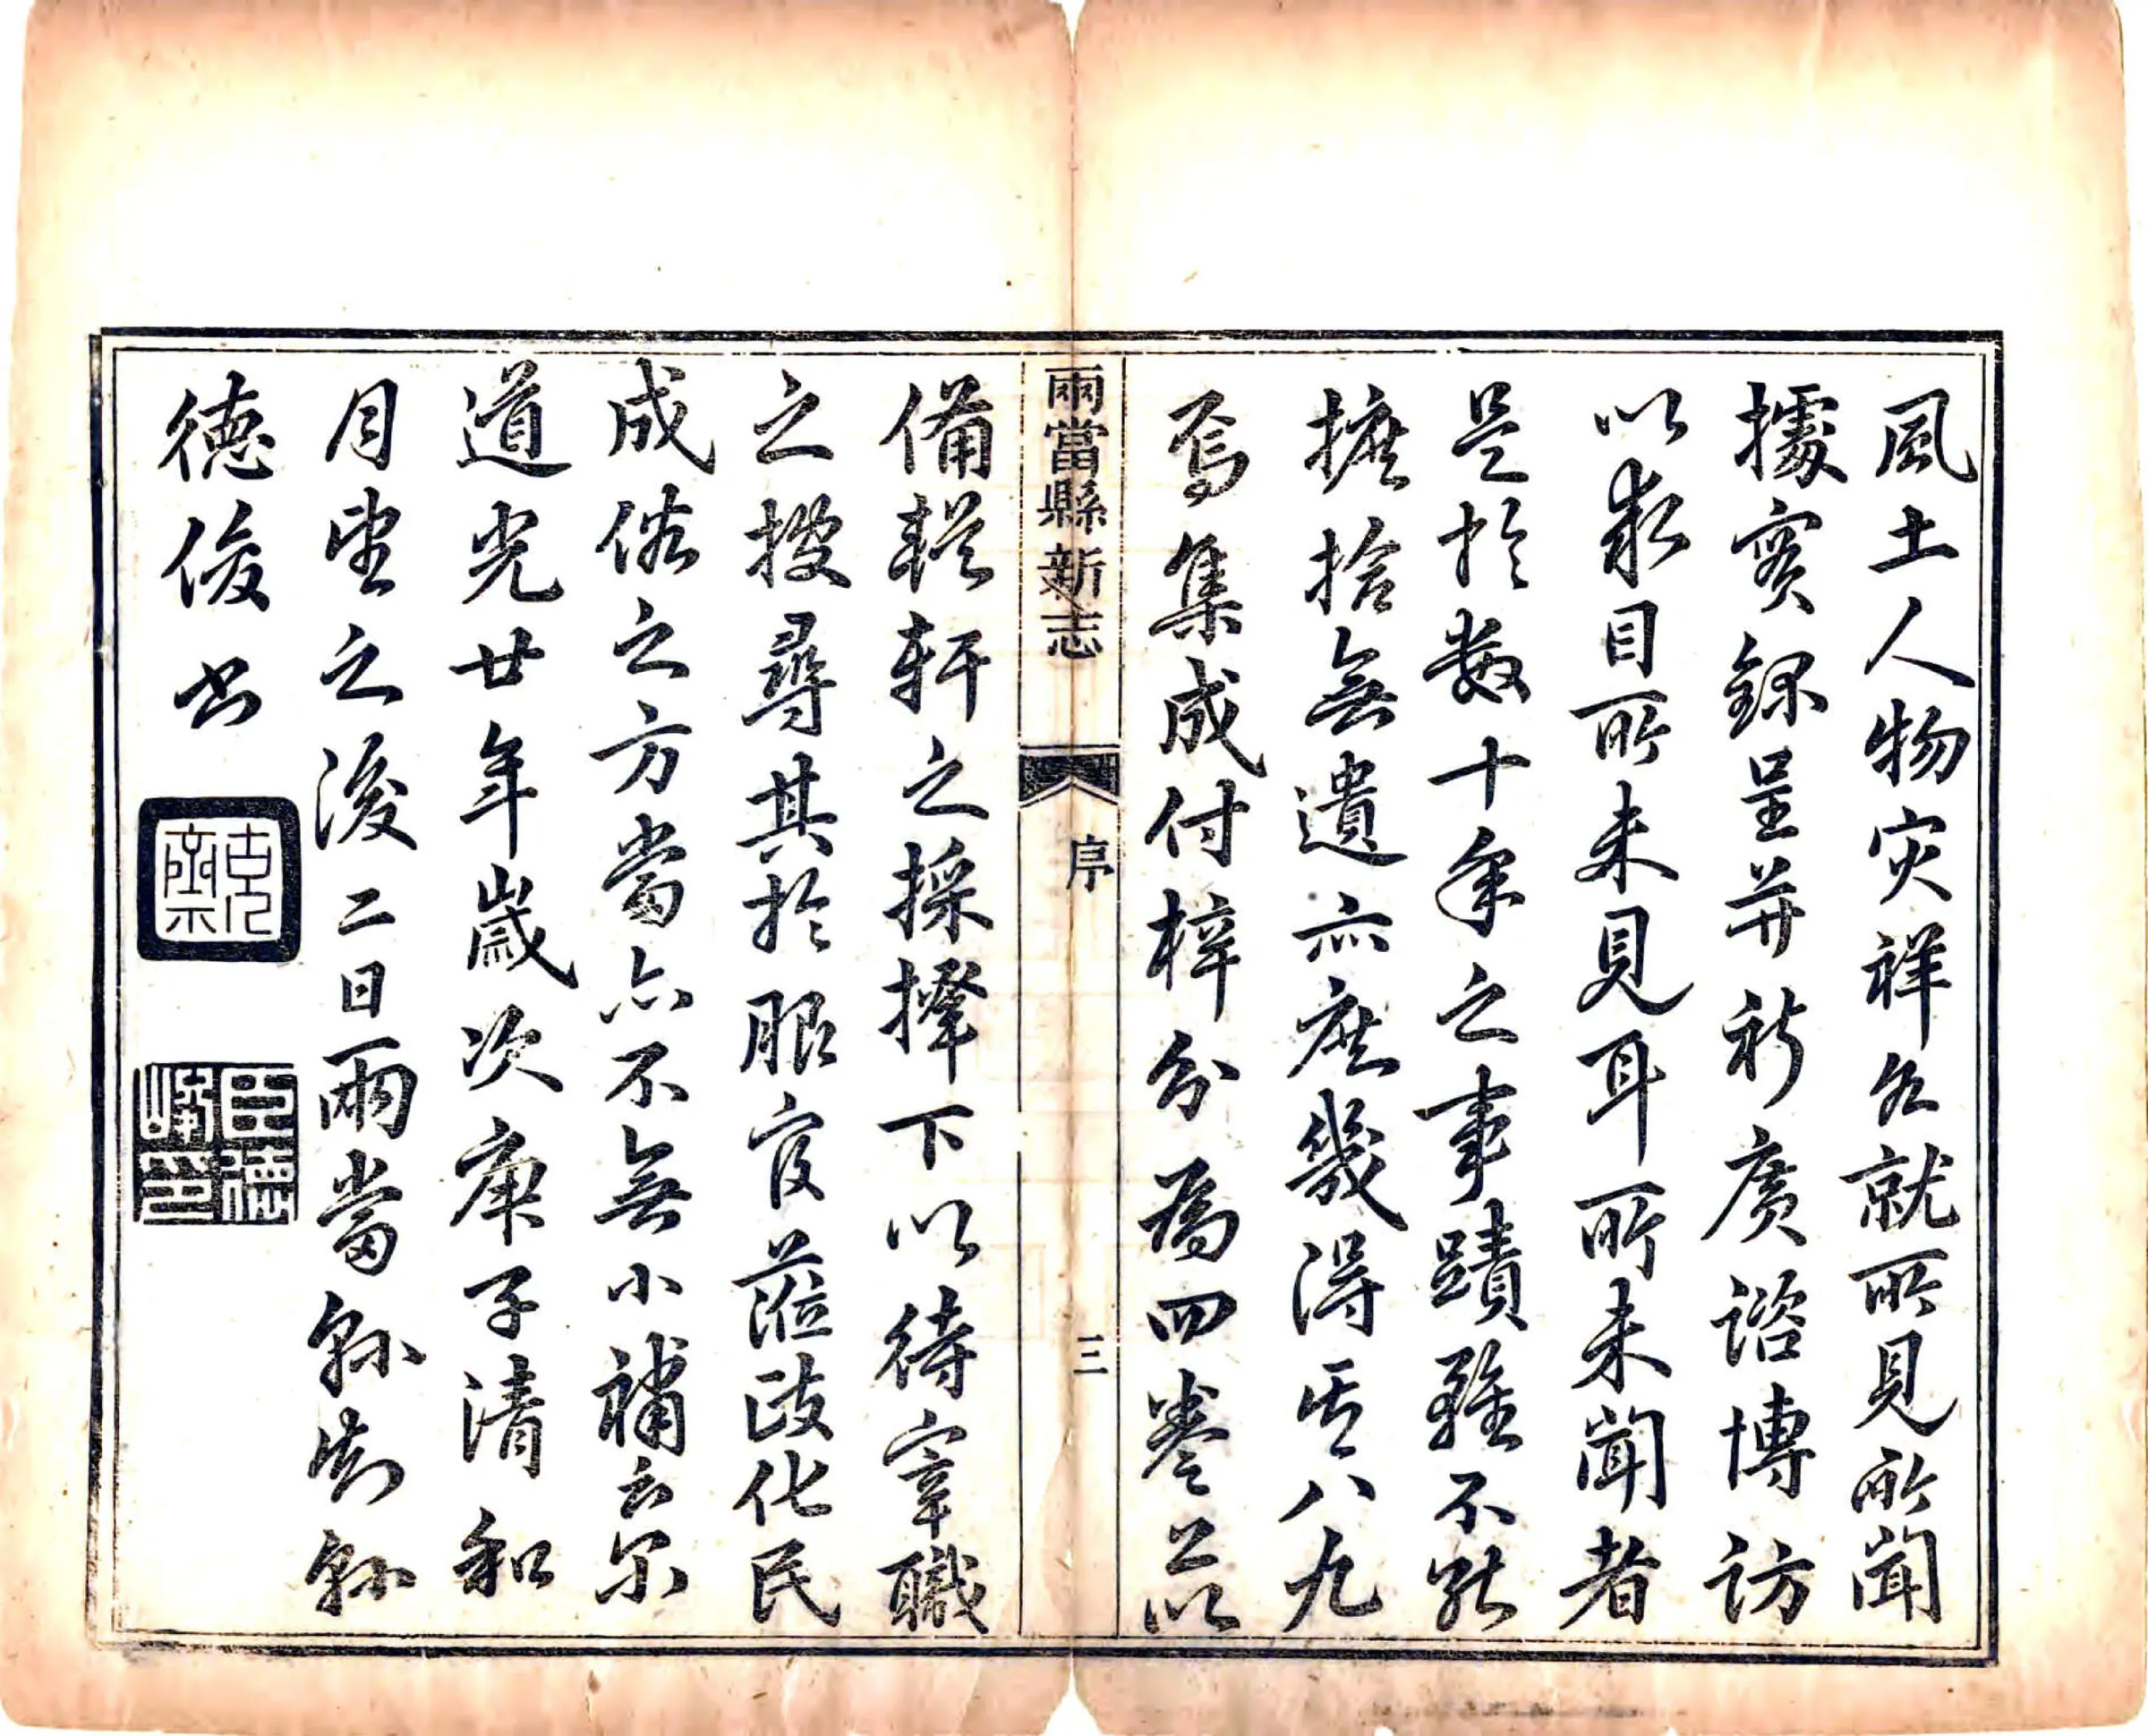 風土人物灾祥各就所見所聞
據實録呈并祈廣諮博訪
以求目所未見耳所未聞者
是於数十年之事蹟雖不能
摭拾無遺亦庶幾得其八九
焉集成付梓分為四卷上以
兩當縣新志
序
三
備輶軒之採擇下以待宰職
之搜尋其於服官蒞政化民
成俗之方當亦不無小補云尔
道光廿年歲次庚子清和
月望之後二日兩當縣知縣
德俊書
克齋
臣德
峻印